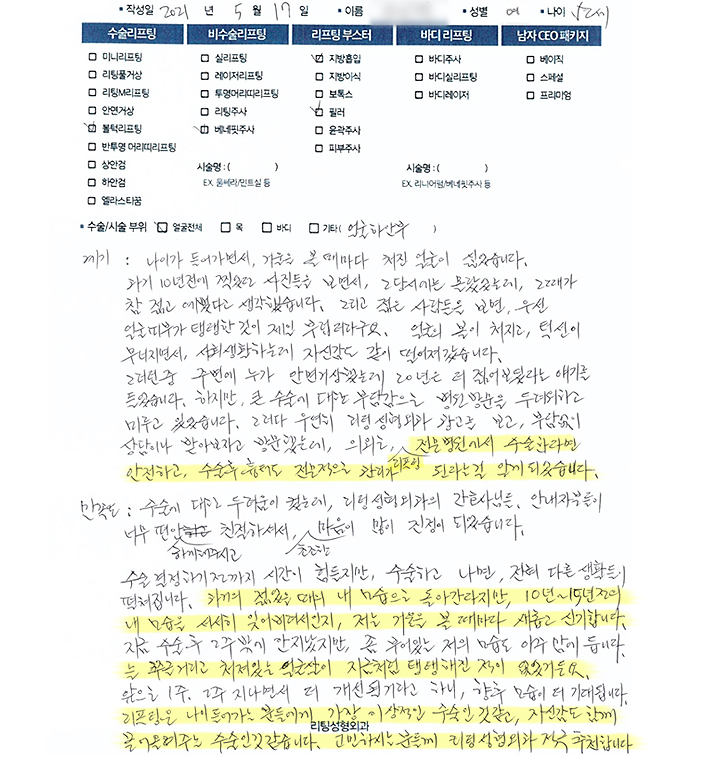 • 작성일 2021 년 5 월 17 일 • 이름 • 성별 여 • 나이 52세
수술리프팅 비수술리프팅 리프팅 부스터 바디 리프팅 남자 CEO 패키지
미니리프팅 실리프팅 지방흡입 바디주사 베이직
리팅풀거상 레이저리프팅 지방이식 바디실리프팅 스페셜
리팅M리프팅 투명머리띠리프팅 보톡스 바디레이저 프리미엄
안면거상 리팅주사 필러
볼턱리프팅 베네핏주사 윤곽주사
반투명 머리띠리프팅 피부주사
상안검 시술명 : ( ) 시술명 : ( )
하안검 EX. 울쎄라/민트실 등 EX. 리니어펌/베네핏주사 등
엘라스티꿈
• 수술/시술 부위 얼굴전체 목 바디 기타( 얼굴하안부 )
계기 : 나이가 들어가면서, 거울을 볼 때마다 처진 얼굴이 싫었습니다.
과거 10년전에 찍었던 사진들을 보면서, 그당시에는 몰랐었는데, 그때가
참 젊고 예뻤다고 생각했습니다. 그리고 젊은 사람들을 보면, 우선
얼굴피부가 탱탱한 것이 제일 부럽더라구요. 얼굴의 볼이 처지고, 턱선이
무너지면서, 사회생활하는데 자신감도 같이 떨어져갔습니다.
그러던 중 주변에 누가 안면거상했는데 20년은 더 젊어보였다는 얘기를
들었습니다. 하지만, 큰 수술에 대한 부담감으로 병원방문을 두려워하고
미루고 있었습니다. 그러다 우연히 리팅성형외과 광고를 보고, 부담없이
상담이나 받아보자고 방문했는데, 의외로, 전문병원에서 수술한다면
안전하고, 수술후 흉터도 전문적으로 관리가 된다는걸 알게 되었습니다.
리프팅
만족도 : 수술에 대한 두려움이 컸는데, 리팅성형외과의 간호사님들, 안내자분들이
너무 편안 친절하셔서, 마음이 많이 진정이 되었습니다.
하게해주시고 초조한
수술 결정하기전까지 시간이 힘들지만, 수술하고 나면, 전혀 다른 생활들이
펼쳐집니다. 과거의 젊었을 때의 내 모습으로 돌아간다지만, 10년~15년전의
내 모습을 서서히 잊어버려서인지, 저는 거울을 볼 때마다 새롭고 신기합니다.
지금 수술후 2주밖에 안지났지만, 좀 부어있는 저의 모습도 아주 맘에 듭니다.
늘 쭈글거리고 처져있는 얼굴살이 지금처럼 탱탱해진 적이 없었거든요.
앞으로 1주, 2주 지나면서 더 개선될거라고 하니, 향후 모습이 더 기대됩니다.
리프팅은 나이들어가는 분들에게 가장 이상적인 수술인 것같고, 자신감도 함께
끌어올려주는 수술인것같습니다. 고민하시는 분들께 리팅성형외과 적극 추천합니다
리팅성형외과